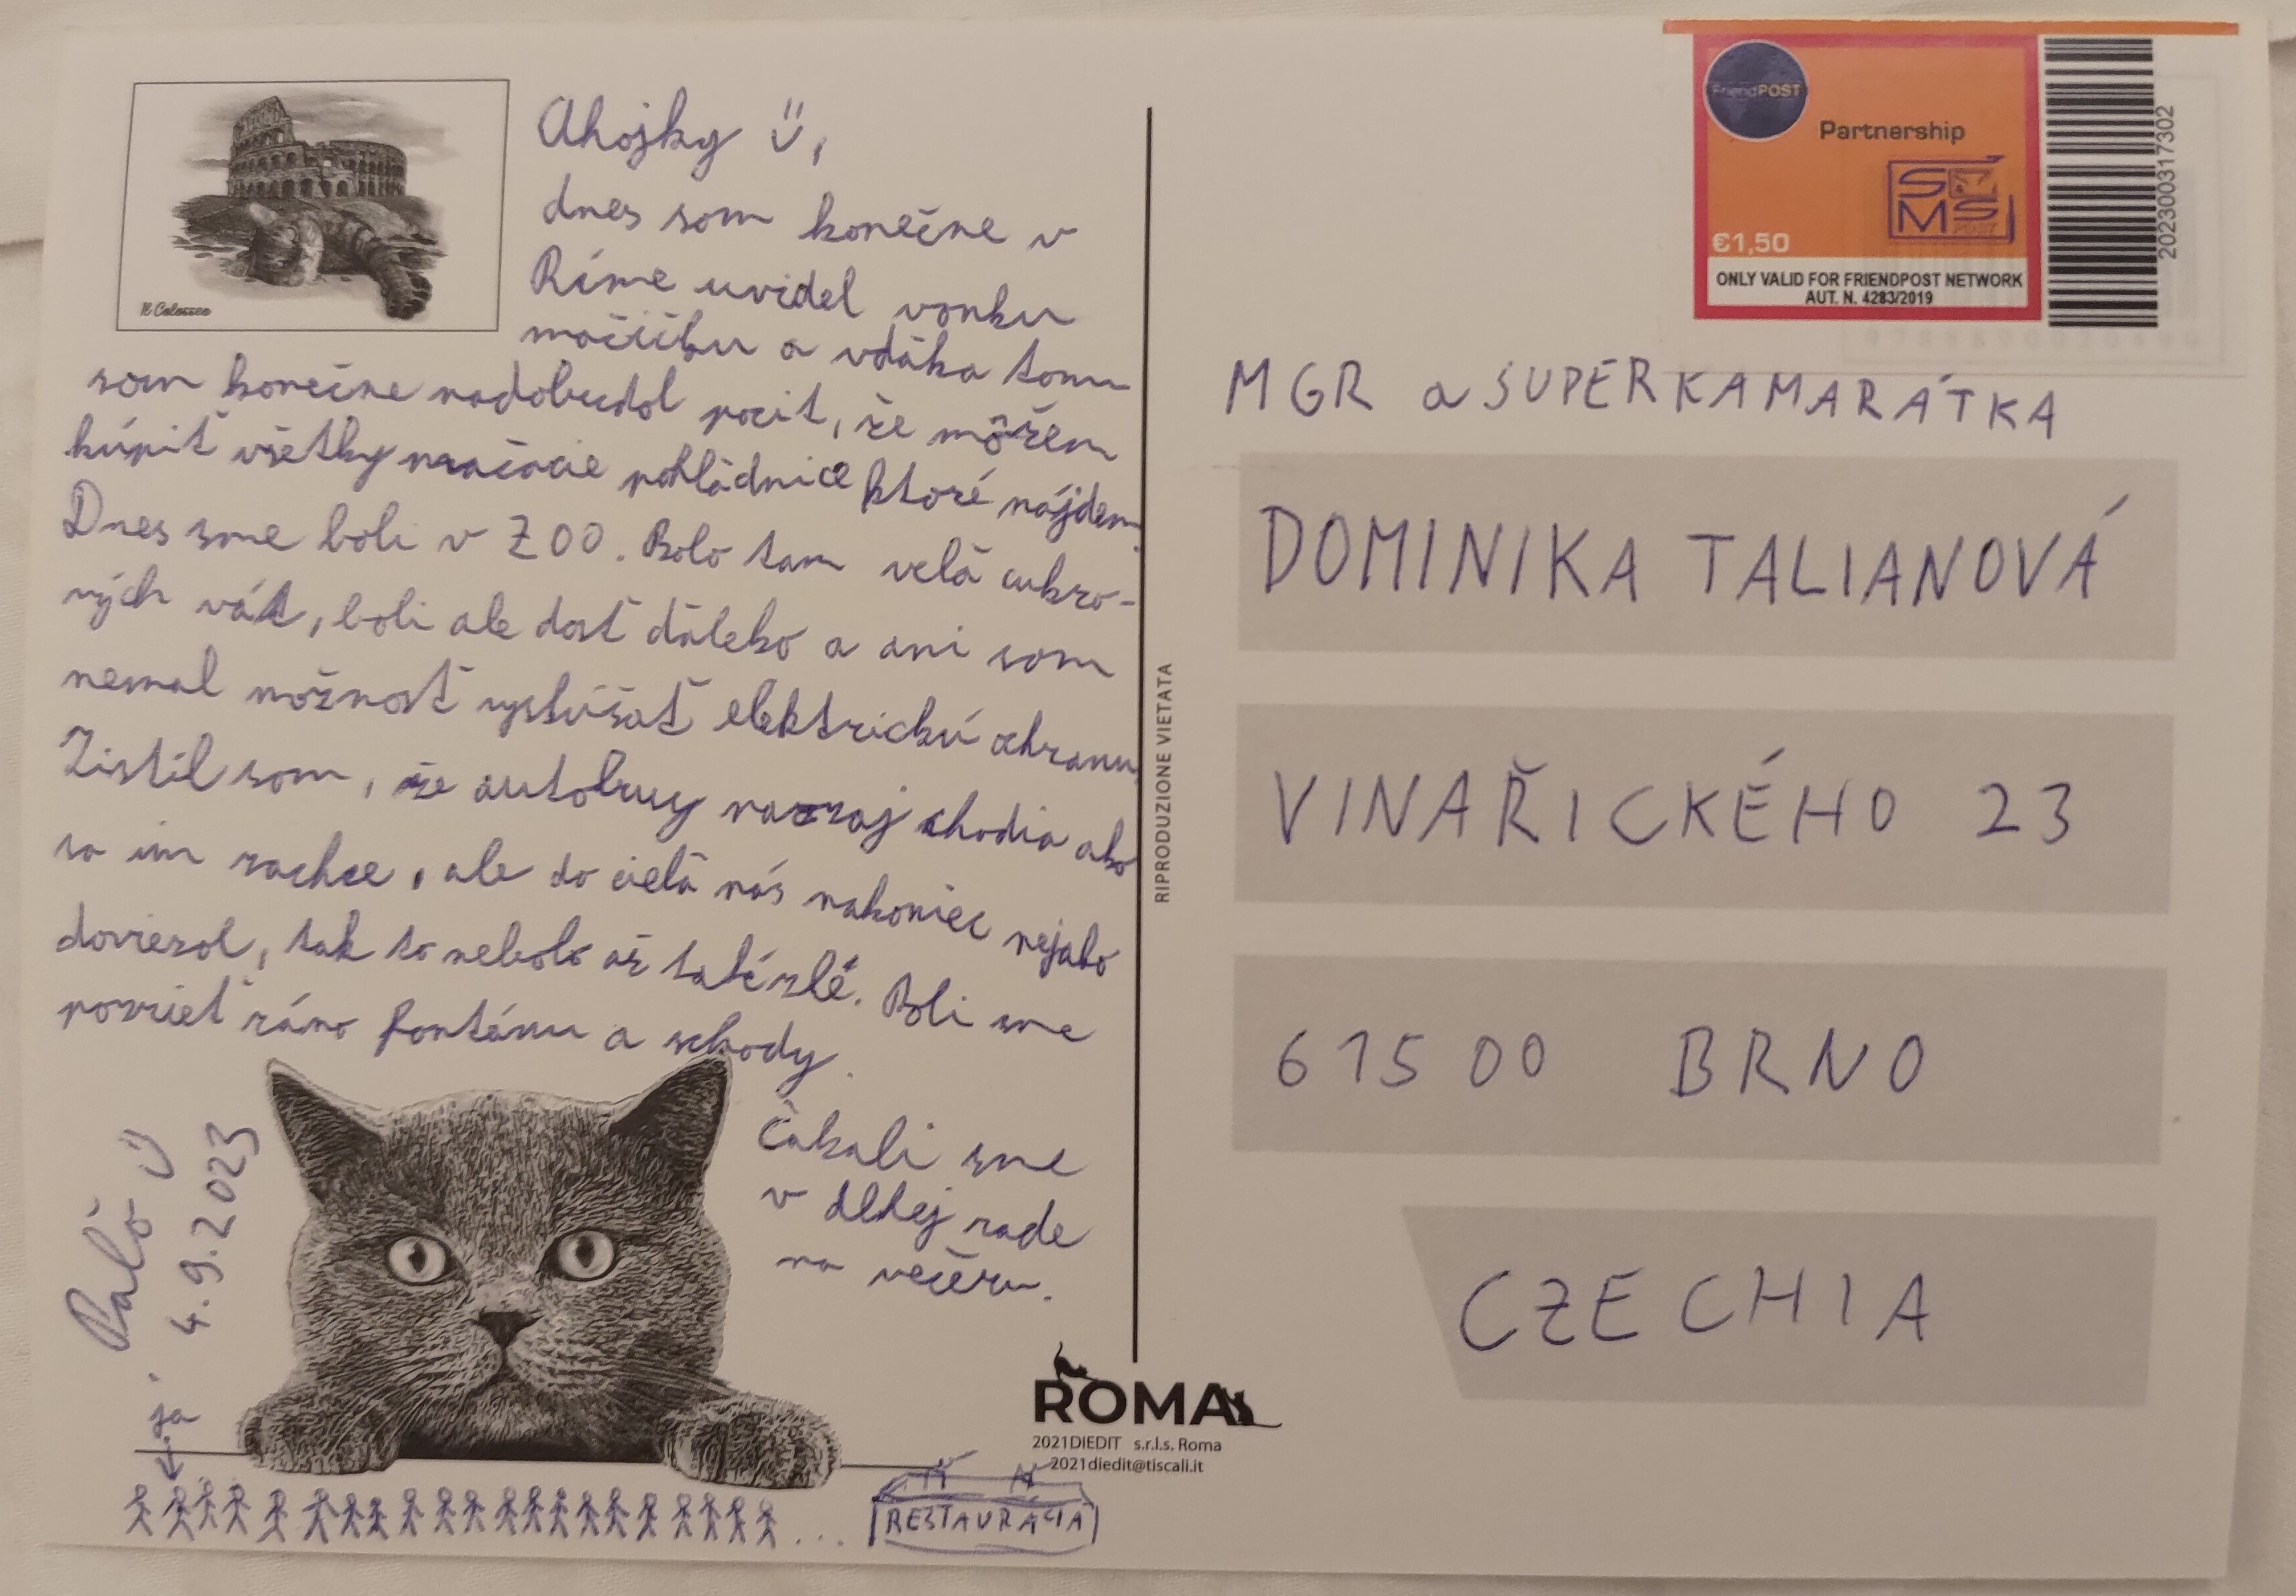 Il Colosseo
Ahojky Ü,
dnes som konečne v
Ríme uvidel vonku
mačičku a vďaka tomu
som konečne nadobudol pocit, že môžem
kúpiť všetky mačacie pohľadnice ktoré nájdem.
Dnes sme boli v ZOO. Bolo tam veľa cukro-
vých vát, boli ale dosť ďaleko a ani som
nemal možnosť vyskúšať elektrickú ohranu.
Zistil som, že autobusy naozaj chodia ako
sa im zachce, ale do cieľa nás nakoniec nejako
doviezol, tak to nebolo až také zlé. Boli sme
pozrieť ráno fontánu a schody.
Čakali sme
v dlhej rade
na večeru.
Paľo Ü
4.9.2023
ja
RESTAURÁCIA
ROMA
2021DIEDIT s.r.l.s. Roma
2021diedit@tiscali.it
RIPRODUZIONE VIETATA
FriendPOST
Partnership
SMS
€1,50
ONLY VALID FOR FRIENDPOST NETWORK
AUT. N. 4283/2019
202300317302
MGR a SUPERKAMARÁTKA
DOMINIKA TALIANOVÁ
VINAŘICKÉHO 23
615 00 BRNO
CZECHIA